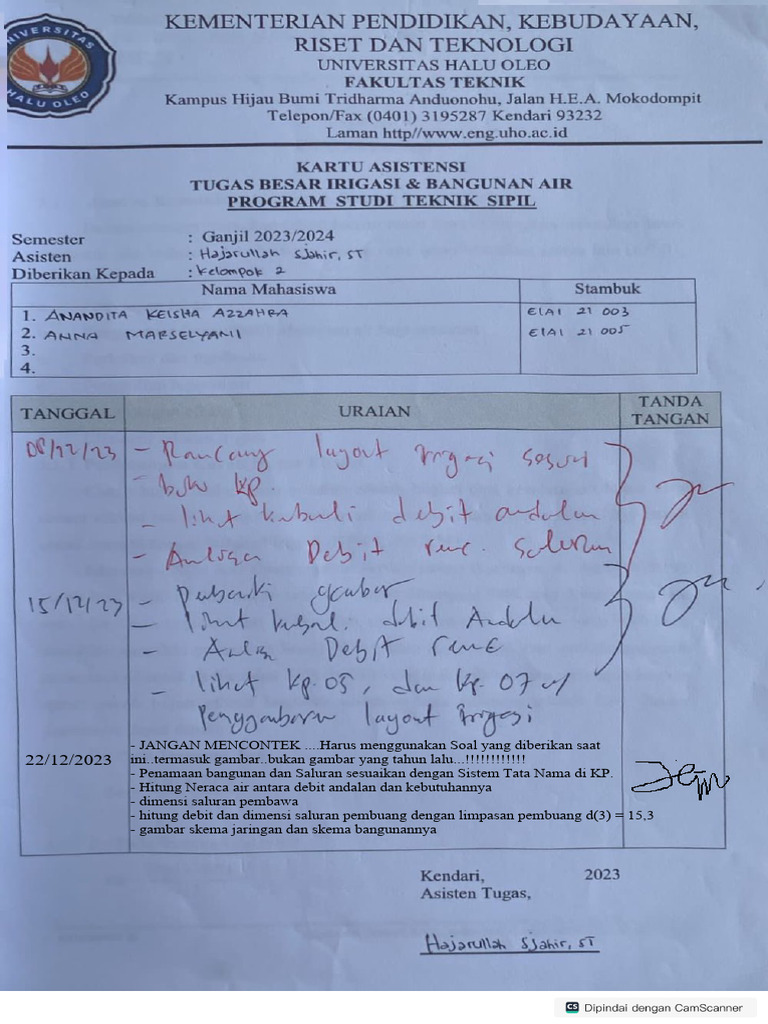 UNIVERSITAS
HALU OLEO
KEMENTERIAN PENDIDIKAN, KEBUDAYAAN,
RISET DAN TEKNOLOGI
UNIVERSITAS HALU OLEO
FAKULTAS TEKNIK
Kampus Hijau Bumi Tridharma Anduonohu, Jalan H.E.A. Mokodompit
Telepon/Fax (0401) 3195287 Kendari 93232
Laman http//www.eng.uho.ac.id
KARTU ASISTENSI
TUGAS BESAR IRIGASI & BANGUNAN AIR
PROGRAM STUDI TEKNIK SIPIL
Semester : Ganjil 2023/2024
Asisten : Hajarullah Sjahir, ST
Diberikan Kepada : Kelompok 2
Nama Mahasiswa Stambuk
1. ANANDITA KEISHA AZZAHRA E1A1 21 003
2. ANNA MARSELYANII E1A1 21 005
3.
4.
TANGGAL URAIAN TANDA TANGAN
08/12/23 - Rancang layout irigasi sesuai
- buku KP.
- lihat kembali debit andalan
- Analisa Debit renc. saluran
15/12/23 - Perbaiki gambar
- lihat debit Andalan
- Debit renc
- lihat KP.05, dan KP. 07 u/
penggambaran layout irigasi
22/12/2023 - JANGAN MENCONTEK ....Harus menggunakan Soal yang diberikan saat
ini..termasuk gambar..bukan gambar yang tahun lalu...!!!!!!!!!!!!
- Penamaan bangunan dan Saluran sesuaikan dengan Sistem Tata Nama di KP.
- Hitung Neraca air antara debit andalan dan kebutuhannya
- dimensi saluran pembawa
- hitung debit dan dimensi saluran pembuang dengan limpasan pembuang d(3) = 15,3
- gambar skema jaringan dan skema bangunannya
Kendari, 2023
Asisten Tugas,
Hajarullah Sjahir, ST
CS Dipindai dengan CamScanner